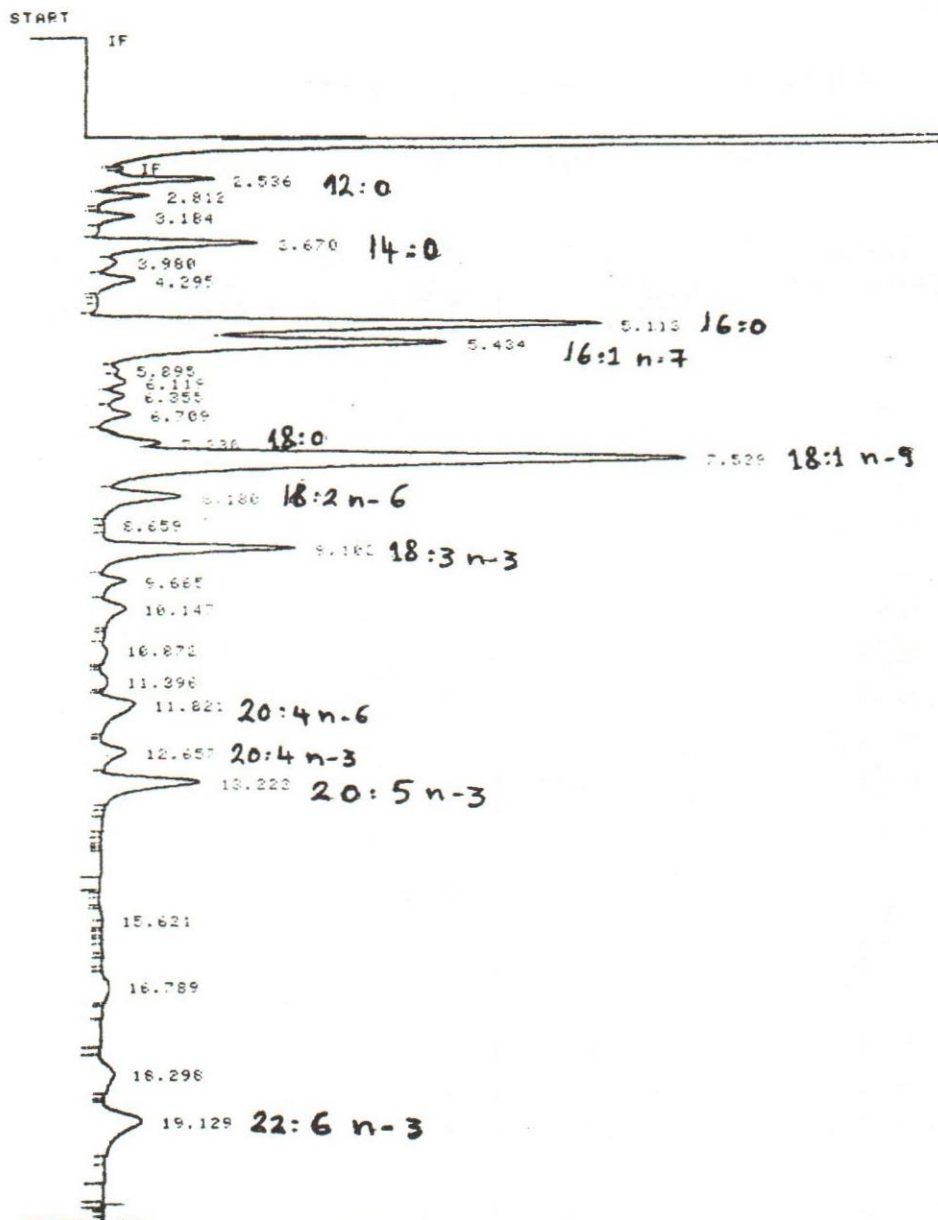 START
IF
IF
2.536 12:0
2.812
3.184
3.670 14:0
3.980
4.295
5.113 16:0
5.434 16:1 n-7
5.895
6.119
6.355
6.709
18:0
7.539 18:1 n-9
8.180 18:2 n-6
8.659
9.102 18:3 n-3
9.665
10.147
10.872
11.396
11.821 20:4 n-6
12.657 20:4 n-3
13.222 20:5 n-3
15.621
16.789
18.298
19.129 22:6 n-3